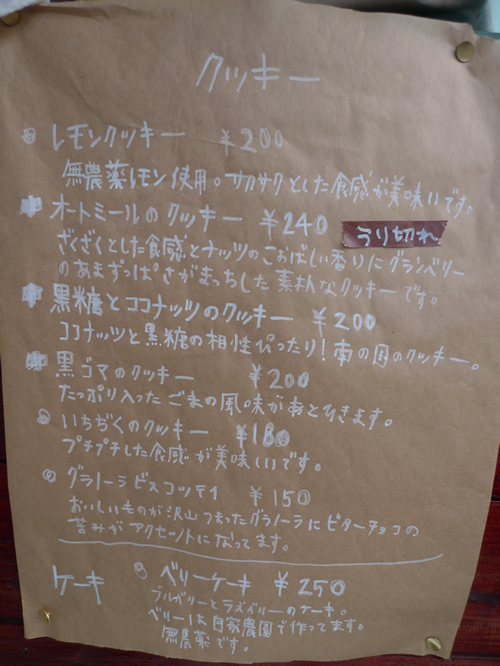 クッキー
レモンクッキー ¥200
無農薬レモン使用。サクサクとした食感が美味いです。
オートミールのクッキー ¥240 うり切れ
ざくざくとした食感とナッツのこおばしい香りにグランベリー
のあまずっぱさがまっちした素朴なクッキーです。
黒糖とココナッツのクッキー ¥200
ココナッツと黒糖の相性ぴったり!南の国のクッキー。
黒ゴマのクッキー ¥200
たっぷり入ったごまの風味があとひきます。
いちぢくのクッキー ¥180
プチプチした食感が美味しいです。
グラノーラビスコッティ ¥150
おいしいものが沢山つまったグラノーラにビターチョコの
苦みがアクセントになってます。
ケーキ ベリーケーキ ¥250
ブルベリーとラズベリーのケーキ。
ベリーは自家農園で作ってます。
無農薬です。